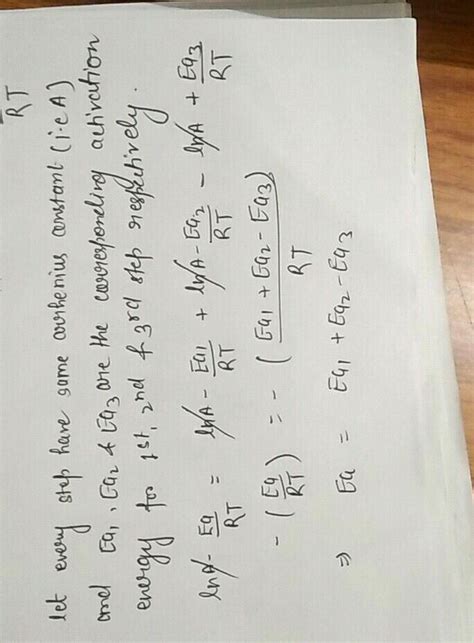 RT
let every step have same arrhenius constant (i.e A)
and Ea1, Ea2 & Ea3 are the corresponding activation
energy for 1st, 2nd & 3rd step respectively.
lnA - Ea/RT = lnA - Ea1/RT + lnA - Ea2/RT - lnA + Ea3/RT
- (Ea/RT) = - (Ea1 + Ea2 - Ea3)/RT
⇒ Ea = Ea1 + Ea2 - Ea3